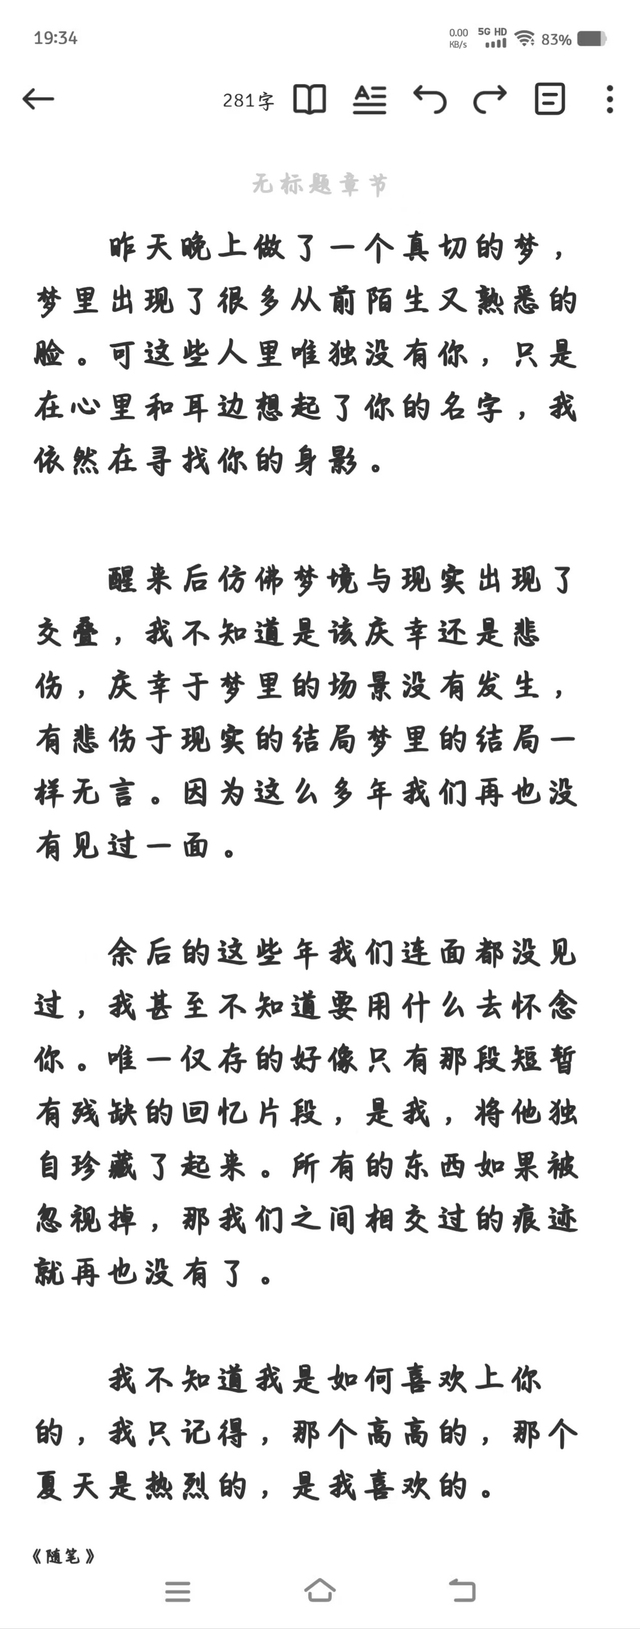 19:34
0.00 KB/s 5G HD 83%
281字
无标题章节
昨天晚上做了一个真切的梦，
梦里出现了很多从前陌生又熟悉的
脸。可这些人里唯独没有你，只是
在心里和耳边想起了你的名字，我
依然在寻找你的身影。
醒来后仿佛梦境与现实出现了
交叠，我不知道是该庆幸还是悲
伤，庆幸于梦里的场景没有发生，
有悲伤于现实的结局梦里的结局一
样无言。因为这么多年我们再也没
有见过一面。
余后的这些年我们连面都没见
过，我甚至不知道要用什么去怀念
你。唯一仅存的好像只有那段短暂
有残缺的回忆片段，是我，将他独
自珍藏了起来。所有的东西如果被
忽视掉，那我们之间相交过的痕迹
就再也没有了。
我不知道我是如何喜欢上你
的，我只记得，那个高高的，那个
夏天是热烈的，是我喜欢的。
《随笔》